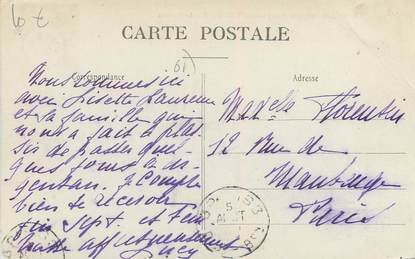 6 €
CARTE POSTALE
(61)
Correspondance
Adresse
Nous sommes ici
avec Lisette Laurence
et sa famille qui
nous a fait le plai
sir de passer quel
ques jours à
Je compte
bien te recevoir
fin Sept. et t'em
brasse affectueusement
Lucy
Florentin
12 Rue de
Maubeuge
Paris